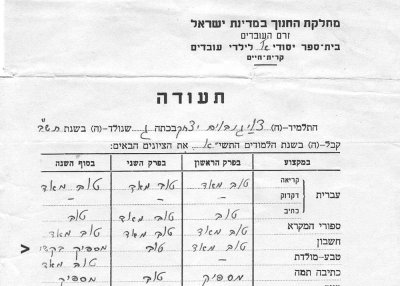 מחלקת החנוך במדינת ישראל
זרם העובדים
בית-ספר יסודי א' לילדי עובדים
קרית-חיים
תעודה
התלמיד-(ה) יצחק בכתה שנולד-(ה) בשנת תש"ב
קבל-(ה) בשנת הלמודים התשי"א את הציונים הבאים:
במקצוע בפרק הראשון בפרק השני בסוף השנה
עברית
קריאה טוב מאד טוב מאד טוב מאד
דקדוק – – –
כתיב טוב טוב מאד טוב
ספורי המקרא טוב מאד טוב מאד טוב מאד
חשבון טוב מאד טוב מספיק בקשי
טבע-מולדת טוב מאד
כתיבה תמה מספיק טוב מספיק